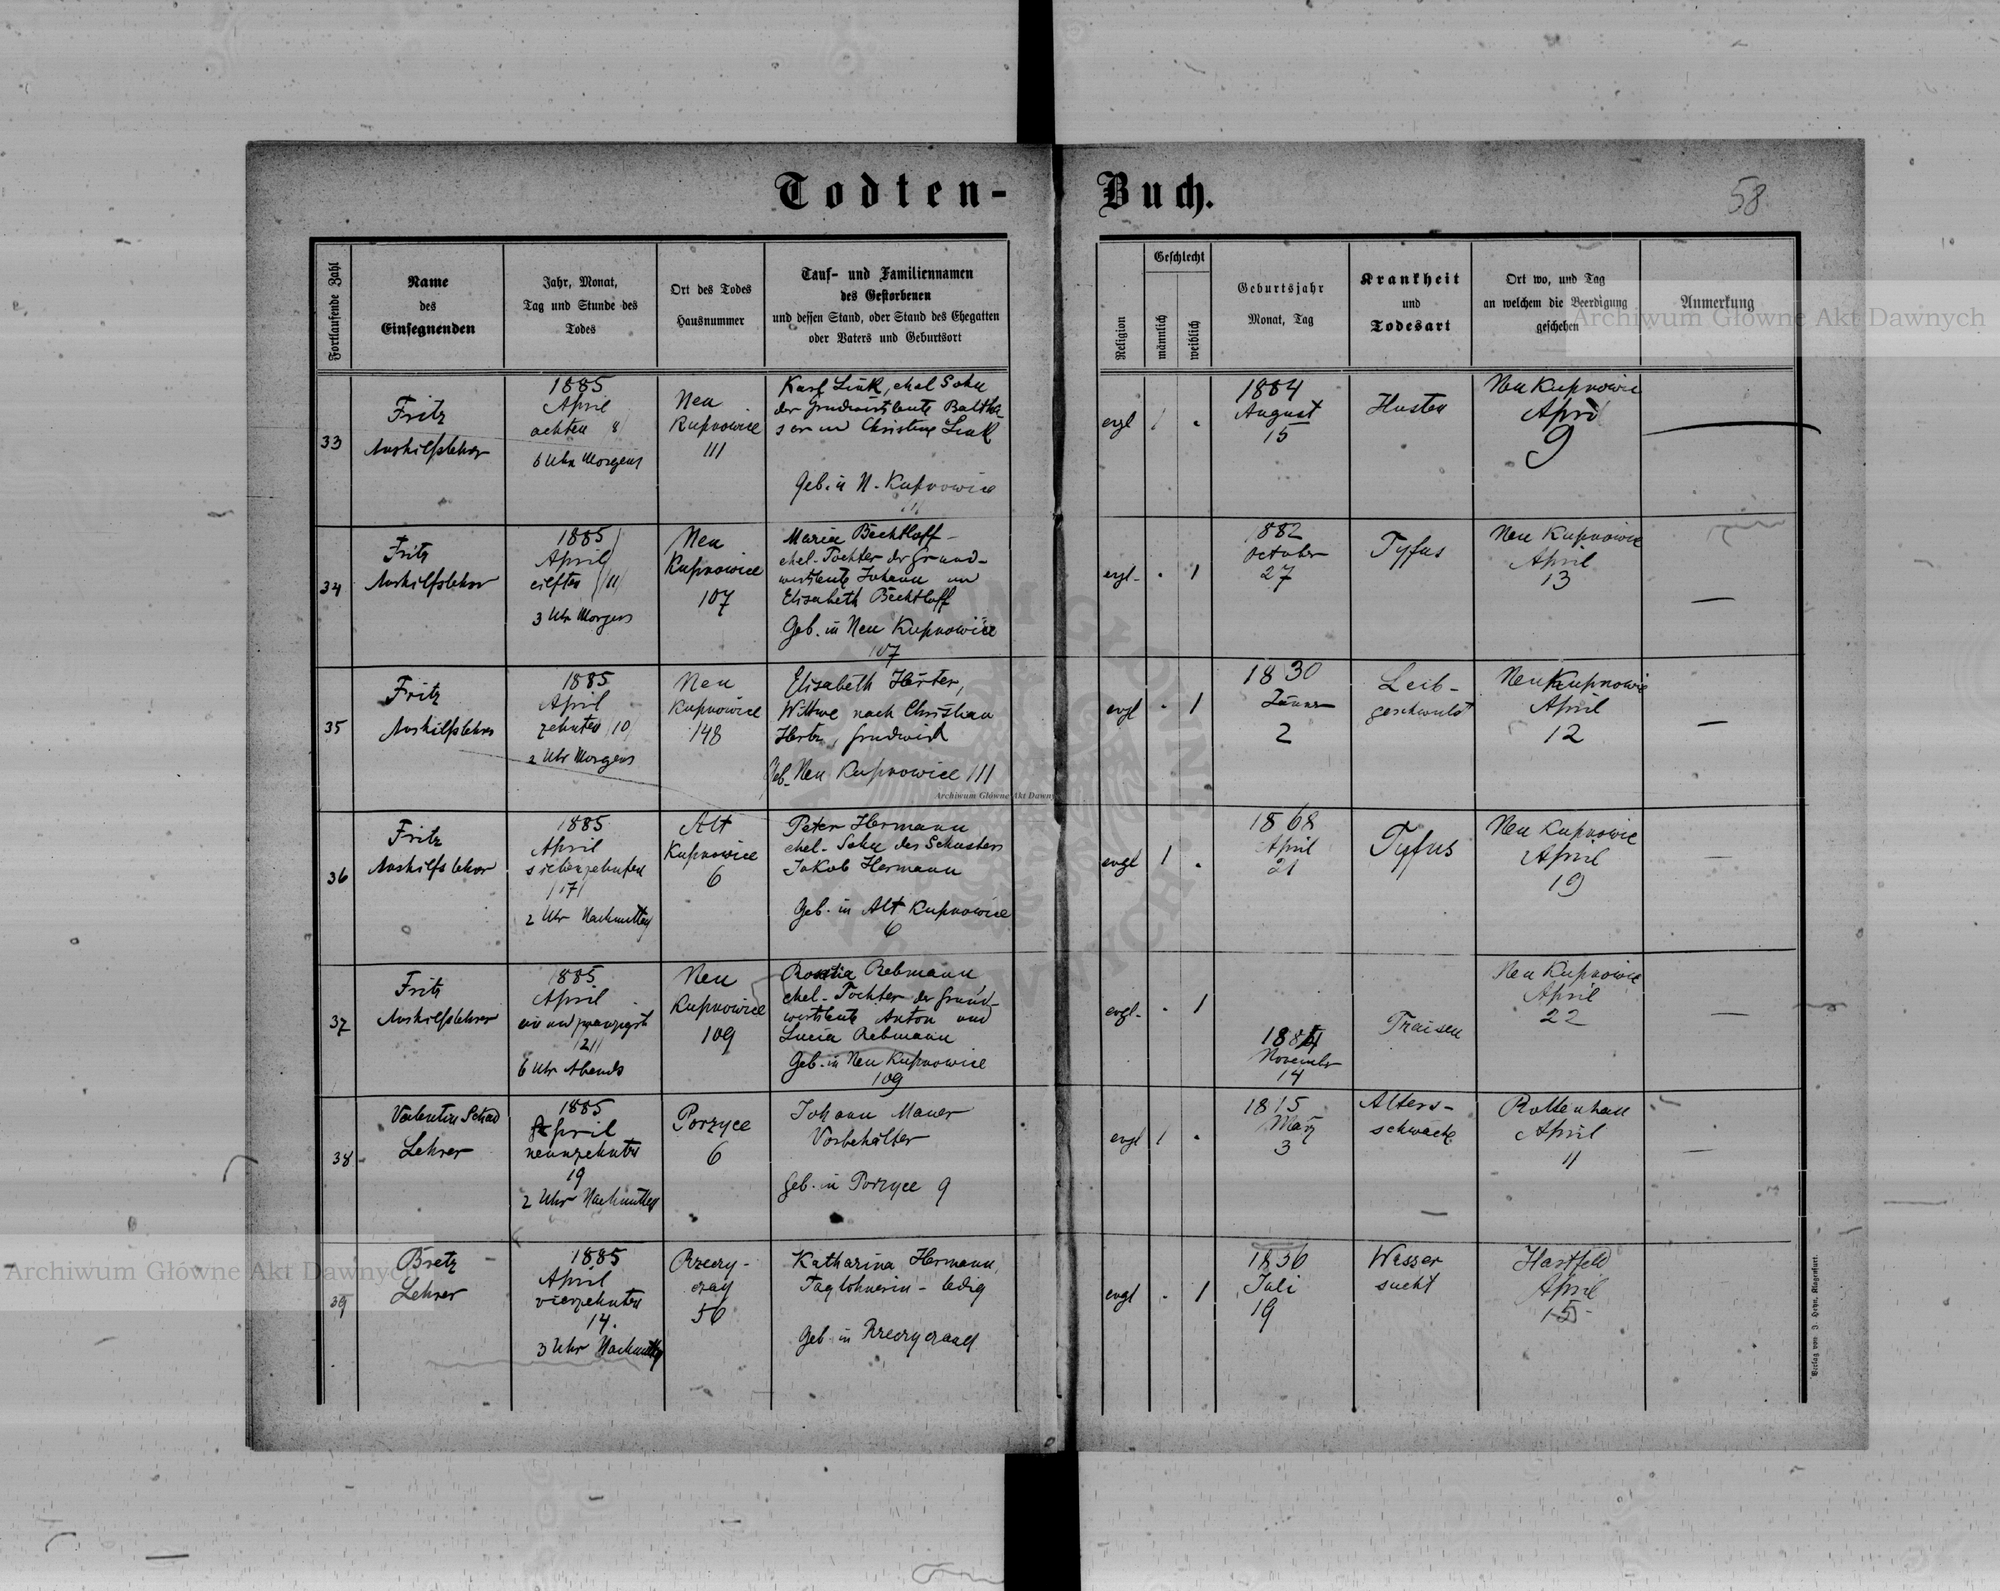 Todten-Buch.
58
Fortlaufende Zahl
Name
des
Einsegnenden
Jahr, Monat,
Tag und Stunde des
Todes
Ort des Todes
Hausnummer
Tauf- und Familiennamen
des Gestorbenen
und dessen Stand, oder Stand des Ehegatten
oder Vaters und Geburtsort
Religion
Geschlecht
männlich
weiblich
Geburtsjahr
Monat, Tag
Krankheit
und
Todesart
Ort wo, und Tag
an welchem die Beerdigung
geschehen
Anmerkung
Archiwum Główne Akt Dawnych
33
Fritz
Aushilfslehrer
1885
April
achten /8/
6 Uhr Morgens
Neu
Kupnowice
111
Karl Link, ehel Sohn
der Grundwirtsleute Baltha
sar un Christine Link
Geb. in N. Kupnowice
evgl
1
1884
August
15
Husten
Neu Kupnowice
April
9
34
Fritz
Aushilfslehrer
1885
April
eilften /11/
3 Uhr Morgens
Neu
Kupnowice
107
Maria Bechtloff
ehel. Tochter der Grund-
wirtsleute Johann un
Elisabeth Bechtloff
Geb. in Neu Kupnowice
107
evgl.
1
882
October
27
Tyfus
Neu Kupnowice
April
13
35
Fritz
Aushilfslehrer
1885
April
zehnten /10/
2 Uhr Morgens
Neu
Kupnowice
148
Elisabeth Herter,
Wittwe nach Christian
Herter, Grundwirth
Geb. Neu Kupnowice 111
evgl
1
1830
Jänner
2
Leib-
geschwulst
Neu Kupnowice
April
12
Archiwum Główne Akt Dawnych
36
Fritz
Aushilfslehrer
1885
April
siebenzehnten
/17/
2 Uhr Nachmittag
Alt
Kupnowice
6
Peter Hermann
ehel. Sohn des Schusters
Jakob Hermann
Geb. in Alt Kupnowice
6
evgl
1
1868
April
21
Tyfus
Neu Kupnowice
April
19
37
Fritz
Aushilfslehrer
1885
April
ein und zwanzigst
/21/
6 Uhr Abends
Neu
Kupnowice
109
Rebmann
ehel. Tochter der Grund-
wirtsleute Anton und
Lucia Rebmann
Geb. in Neu Kupnowice
109
evgl.
1
November
14
Fraisen
Neu Kupnowice
April
22
38
Valentin Schad
Lehrer
1885
April
neunzehnten
19
2 Uhr Nachmittag
Porzyce
6
Johann Mauer
Vorbehälter
Geb. in Porzyce 9
evgl
1
1815
März
3
Alters-
schwäche
Rottenhan
April
11
39
Bretz
Lehrer
1885
April
vierzehnten
14.
3 Uhr Nachmittag
Rzeczy-
czay
56
Katharina Hermann,
Taglöhnerin - ledig
Geb. in Rzeczyczany
evgl
1
1856
Juli
19
Wasser
sucht
Hartfeld
April
15
Archiwum Główne Akt Dawnych
Verlag von J. Heyn, Klagenfurt.